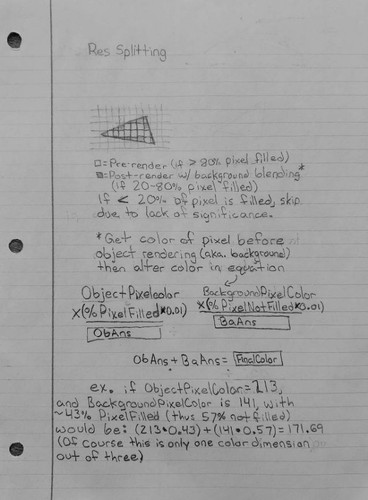 Res Splitting
□=Pre-render (if ≥ 80% pixel filled)
▨=Post-render w/ background blending*
(if 20-80% pixel filled)
If < 20% of pixel is filled, skip
due to lack of significance.
*Get color of pixel before
object rendering (aka. background)
then alter color in equation
ObjectPixelcolor BackgroundPixelColor
X(%PixelFilled*0.01) X(%PixelNotFilled*0.01)
ObAns BaAns
ObAns + BaAns = FinalColor
ex. if ObjectPixelColor=213,
and BackgroundPixelColor is 141, with
~43% PixelFilled (thus 57% not filled)
would be: (213•0.43)+(141•0.57)=171.69
(Of course this is only one color dimension
out of three)